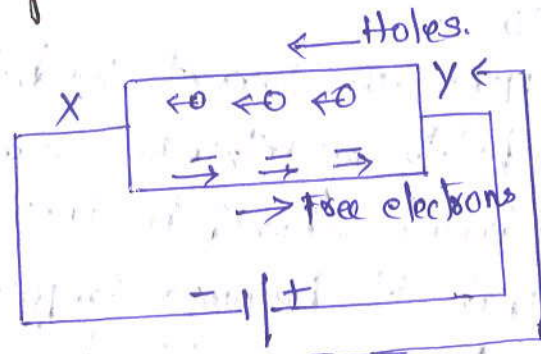 Holes.
X
Y
Free electrons
- +